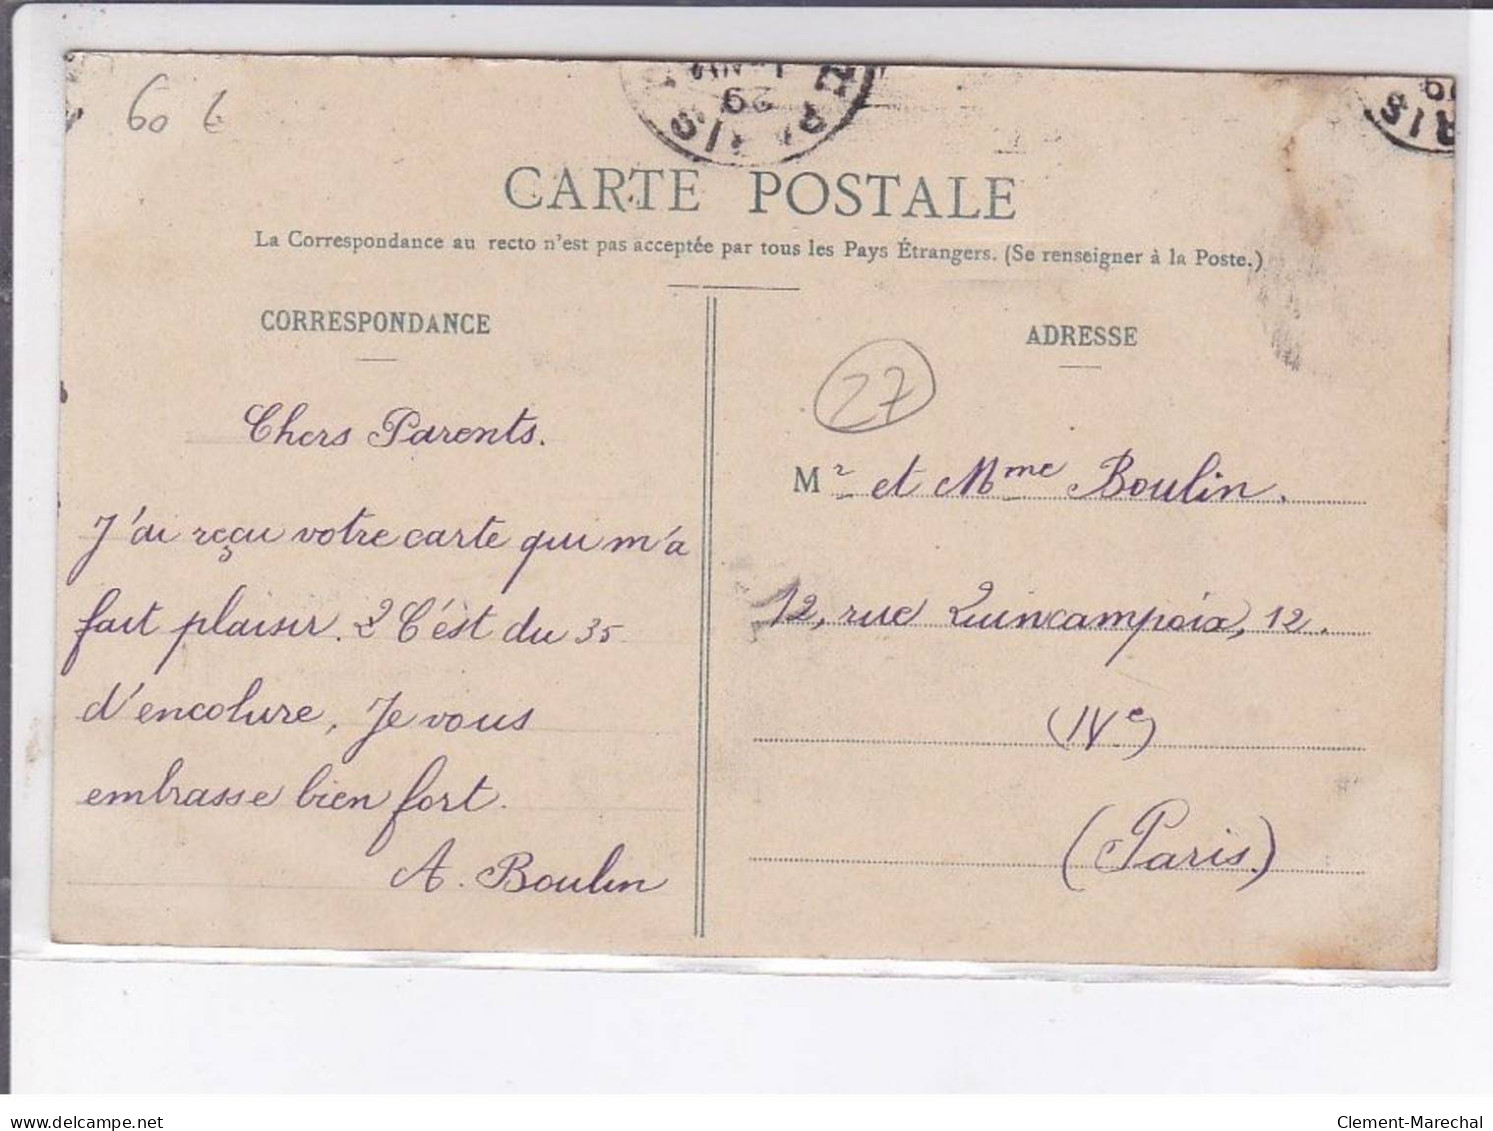 60 €
PARIS
29
RIS
CARTE POSTALE
La Correspondance au recto n'est pas acceptée par tous les Pays Étrangers. (Se renseigner à la Poste.)
CORRESPONDANCE
Chers Parents.
J'ai reçu votre carte qui m'a
fait plaisir. C'est du 35
d'encolure, Je vous
embrasse bien fort.
A. Boulin
ADRESSE
27
Mr et Mme Boulin.
12, rue Quincampoix, 12.
(IVe)
(Paris.)
delcampe.net
Clement-Marechal